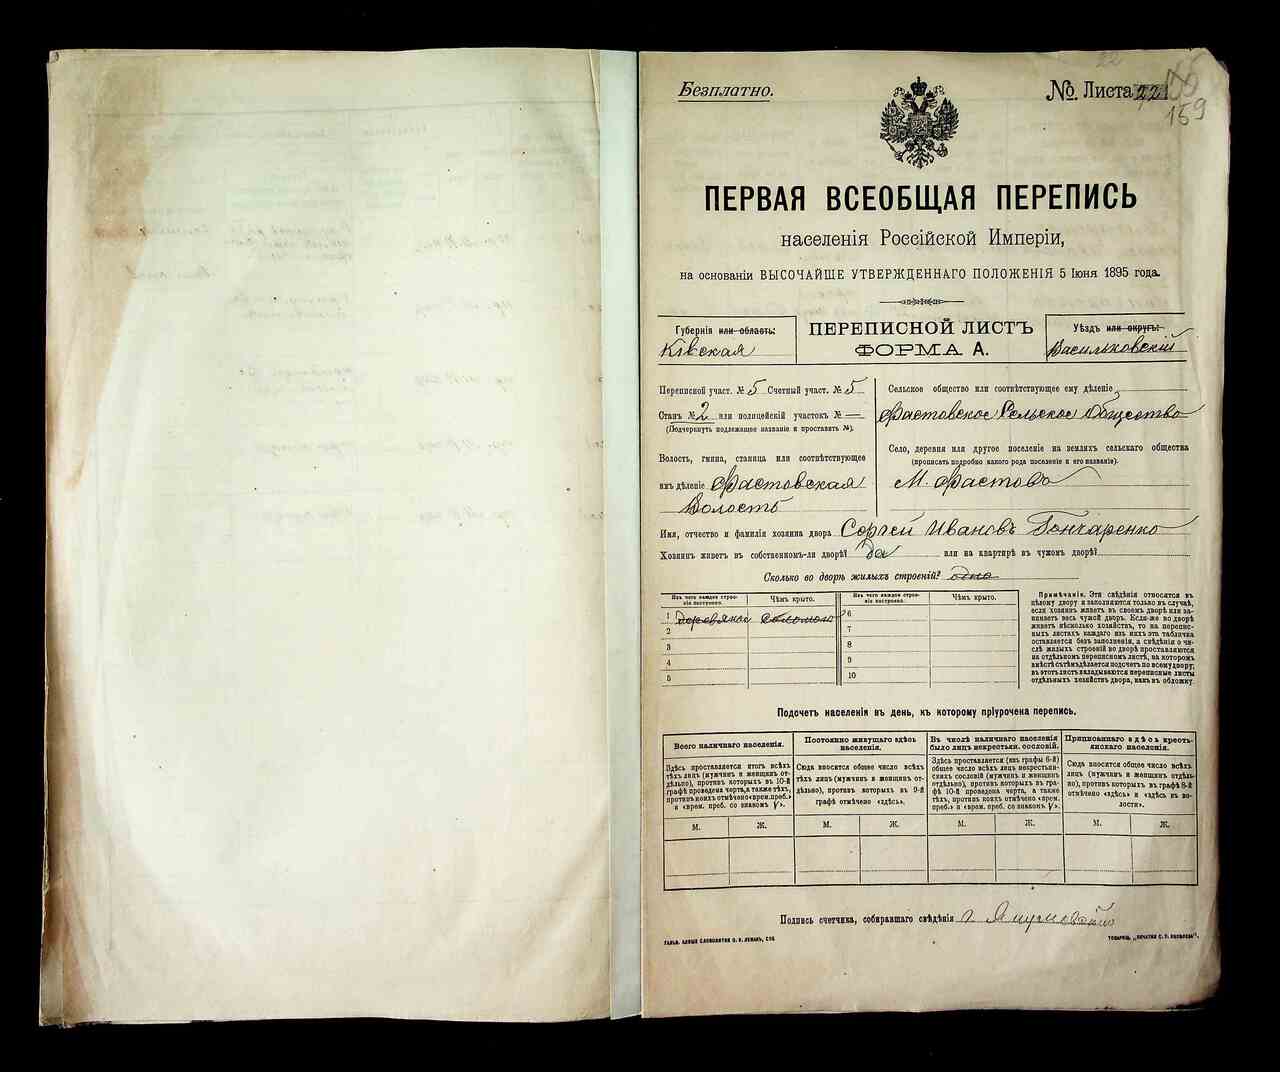 Безплатно.
№ Листа 221
159
ПЕРВАЯ ВСЕОБЩАЯ ПЕРЕПИСЬ
населенія Россійской Имперіи,
на основаніи ВЫСОЧАЙШЕ УТВЕРЖДЕННАГО ПОЛОЖЕНІЯ 5 Іюня 1895 года.
Губернія или область:
Кіевская
ПЕРЕПИСНОЙ ЛИСТЪ
ФОРМА А.
Уѣздъ или округъ:
Васильковскій
Переписной участ. № 5 Счетный участ. № 5
Станъ № 2 или полицейскій участокъ № —
(Подчеркнуть подлежащее названіе и проставить №).
Волость, гмина, станица или соотвѣтствующее
имъ дѣленіе Фастовская
Волость
Сельское общество или соотвѣтствующее ему дѣленіе
Фастовское Сельское Общество
Село, деревня или другое поселеніе на земляхъ сельскаго общества
(прописать подробно какого рода поселеніе и его названіе).
М. Фастовъ
Имя, отчество и фамилія хозяина двора Сергей Ивановъ Гончаренко
Хозяинъ живетъ въ собственномъ-ли дворѣ? да или на квартирѣ въ чужомъ дворѣ?
Сколько во дворѣ жилыхъ строеній? одно
Изъ чего каждое строеніе построено. Чѣмъ крыто. Изъ чего каждое строеніе построено. Чѣмъ крыто.
1 деревяное соломою 6
2 7
3 8
4 9
5 10
Примѣчаніе. Эти свѣдѣнія относятся къ
цѣлому двору и заполняются только въ случаѣ,
если хозяинъ живетъ въ своемъ дворѣ или занимаетъ весь чужой дворъ. Если-же во дворѣ
живетъ нѣсколько хозяйствъ, то на переписныхъ листахъ каждаго изъ нихъ эта табличка
оставляется безъ заполненія, а свѣдѣнія о числѣ жилыхъ строеній во дворѣ проставляются
на отдѣльномъ переписномъ листѣ, на которомъ
вмѣстѣ съ тѣмъ дѣлается подсчетъ по всему двору;
въ этотъ листъ вкладываются переписные листы
отдѣльныхъ хозяйствъ двора, какъ въ обложку.
Подсчетъ населенія въ день, къ которому пріурочена перепись.
Всего наличнаго населенія.
Здѣсь проставляется итогъ всѣхъ
тѣхъ лицъ (мужчинъ и женщинъ отдѣльно), противъ которыхъ въ 10-й
графѣ проведена черта, а также тѣхъ,
противъ коихъ отмѣчено «врем. преб.»
и «врем. преб. со знакомъ V».
Постоянно живущаго здѣсь
населенія.
Сюда вносится общее число всѣхъ
тѣхъ лицъ (мужчинъ и женщинъ отдѣльно), противъ которыхъ въ 9-й
графѣ отмѣчено «здѣсь».
Въ числѣ наличнаго населенія
было лицъ некрестьян. сословій.
Здѣсь проставляется (изъ графы 6-й)
общее число всѣхъ лицъ некрестьянскихъ сословій (мужчинъ и женщинъ
отдѣльно), противъ коихъ въ графѣ 10-й проведена черта, а также
тѣхъ, противъ коихъ отмѣчено «врем.
преб.» и «врем. преб. со знакомъ V».
Приписаннаго здѣсь крестьянскаго населенія.
Сюда вносится общее число всѣхъ
лицъ (мужчинъ и женщинъ отдѣльно), противъ которыхъ въ графѣ 8-й
отмѣчено «здѣсь» и «здѣсь въ волости».
М. Ж. М. Ж. М. Ж. М. Ж.
Подпись счетчика, собиравшаго свѣдѣнія